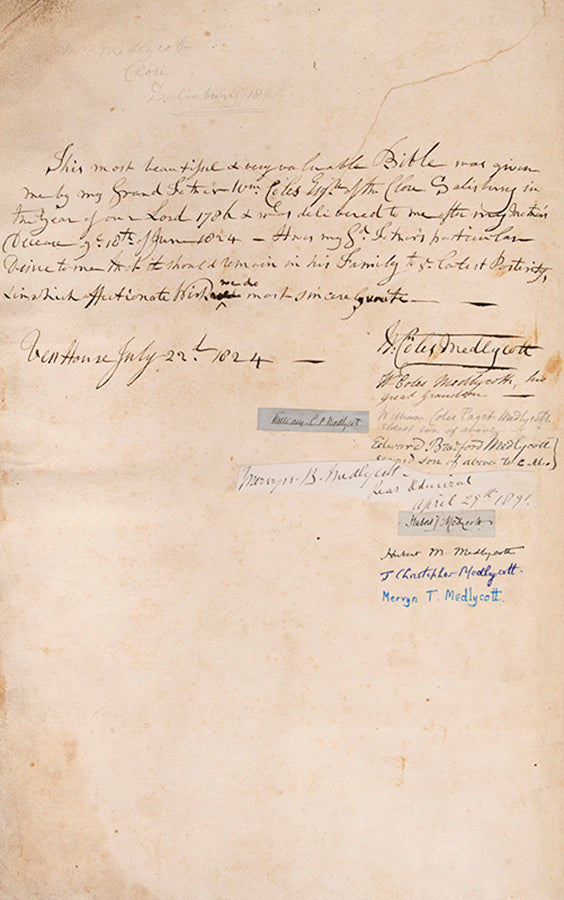 Medlycott
Close
Salisbury 182
This most beautiful & very valuable Bible was given
me by my Grand Father Wm. Coles Esqr. of the Close Salisbury in
the Year of our Lord 1786 & was delivered to me after my Mother's
Decease ye. 18th. of June 1824 — It was my Gd. Father's particular
Desire to me that it should remain in his Family to ye. latest Posterity,
in which affectionate Wish me do most sincerely unite —
Ven House July 22d. 1824 —
W. Coles Medlycott
Wm Coles Medlycott, his
great Grandson —
William Coles Paget Medlycott
eldest son of above
William C P Medlycott
Edward Bradford Medlycott
second son of above to C. M.
Mervyn B. Medlycott
Rear Admiral
April 29th 1891.
Hubert J Medlycott
Hubert M. Medlycott
J Christopher Medlycott.
Mervyn T. Medlycott.